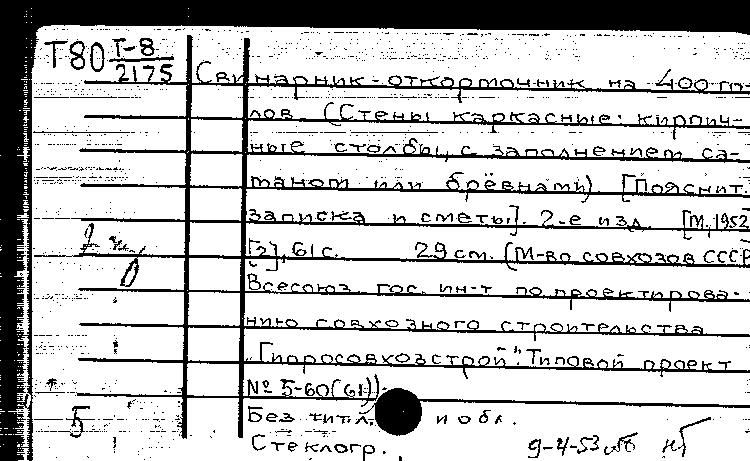 Т80 Т-8
2175
Свинарник-откормочник на 400 го-
лов. (Стены каркасные: кирпич-
ные столбы, с заполнением са-
маном или брёвнами) [Пояснит.
записка и сметы]. 2-е изд. [М., 1952]
[2], 61 с. 29 см. (М-во совхозов СССР
Всесоюз. гос. ин-т по проектирова-
нию совхозного строительства
"Гипросовхозстрой". Типовой проект
№ 5-60(61)).
Без тит. л. и обл.
5
Стеклогр.
9-4-53